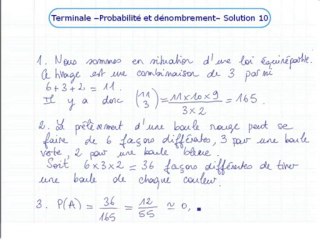 Terminale –Probabilité et dénombrement– Solution 10
1. Nous sommes en situation d'une loi équirépartie.
Ce tirage est une combinaison de 3 parmi
6+3+2 = 11.
Il y a donc (11 3) = 11×10×9 / 3×2 = 165.
2. Le prélèvement d'une boule rouge peut se
faire de 6 façons différentes, 3 pour une boule
verte, 2 pour une boule bleue.
Soit 6×3×2 = 36 façons différentes de tirer
une boule de chaque couleur.
3. P(A) = 36/165 = 12/55 ≈ 0,